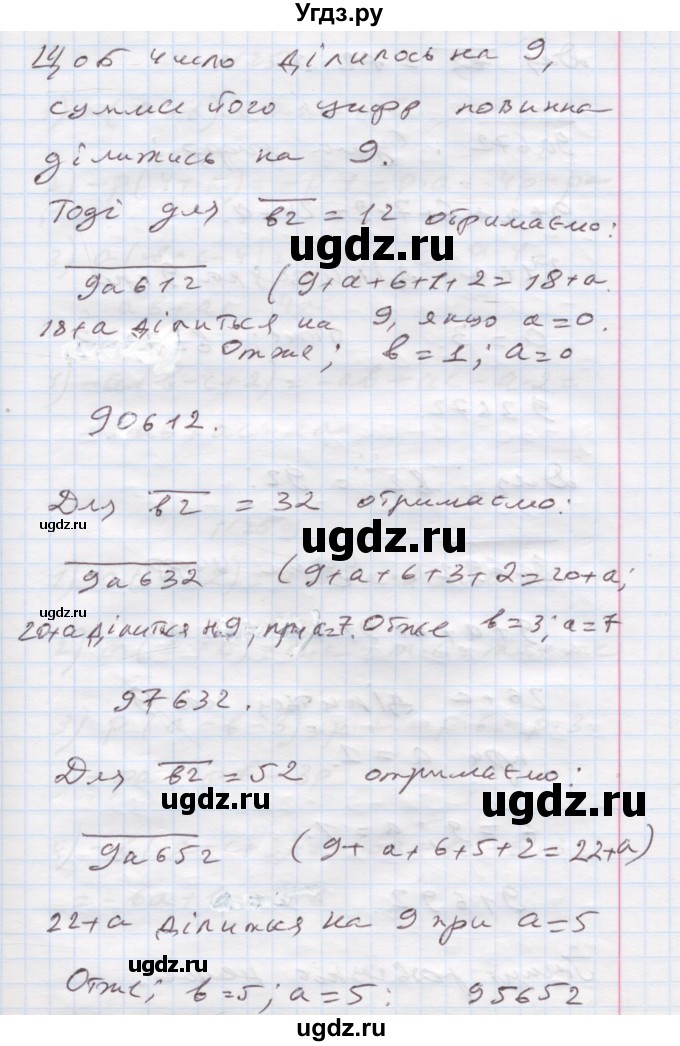 Угдз.ру
Щоб число ділилось на 9,
сумма його цифр повинна
ділитись на 9.
Тоді для в2 = 12 отримаємо:
ugdz.ru
9а612 (9+а+6+1+2=18+а.
18+а ділиться на 9, якщо а=0.
ugdz.ru
Отже; в=1; а=0
90612.
Для в2 = 32 отримаємо:
ugdz.ru
ugdz.ru
9а632 (9+а+6+3+2=20+а;
ugdz.ru
20+а ділиться н.9, при а=7. Отже в=3; а=7
97632.
Для в2 = 52 отримаємо:
ugdz.ru
ugdz.ru
9а652 (9+а+6+5+2=22+а)
22+а ділиться на 9 при а=5
ugdz.ru
Отже; в=5; а=5: 95652
ugdz.ru